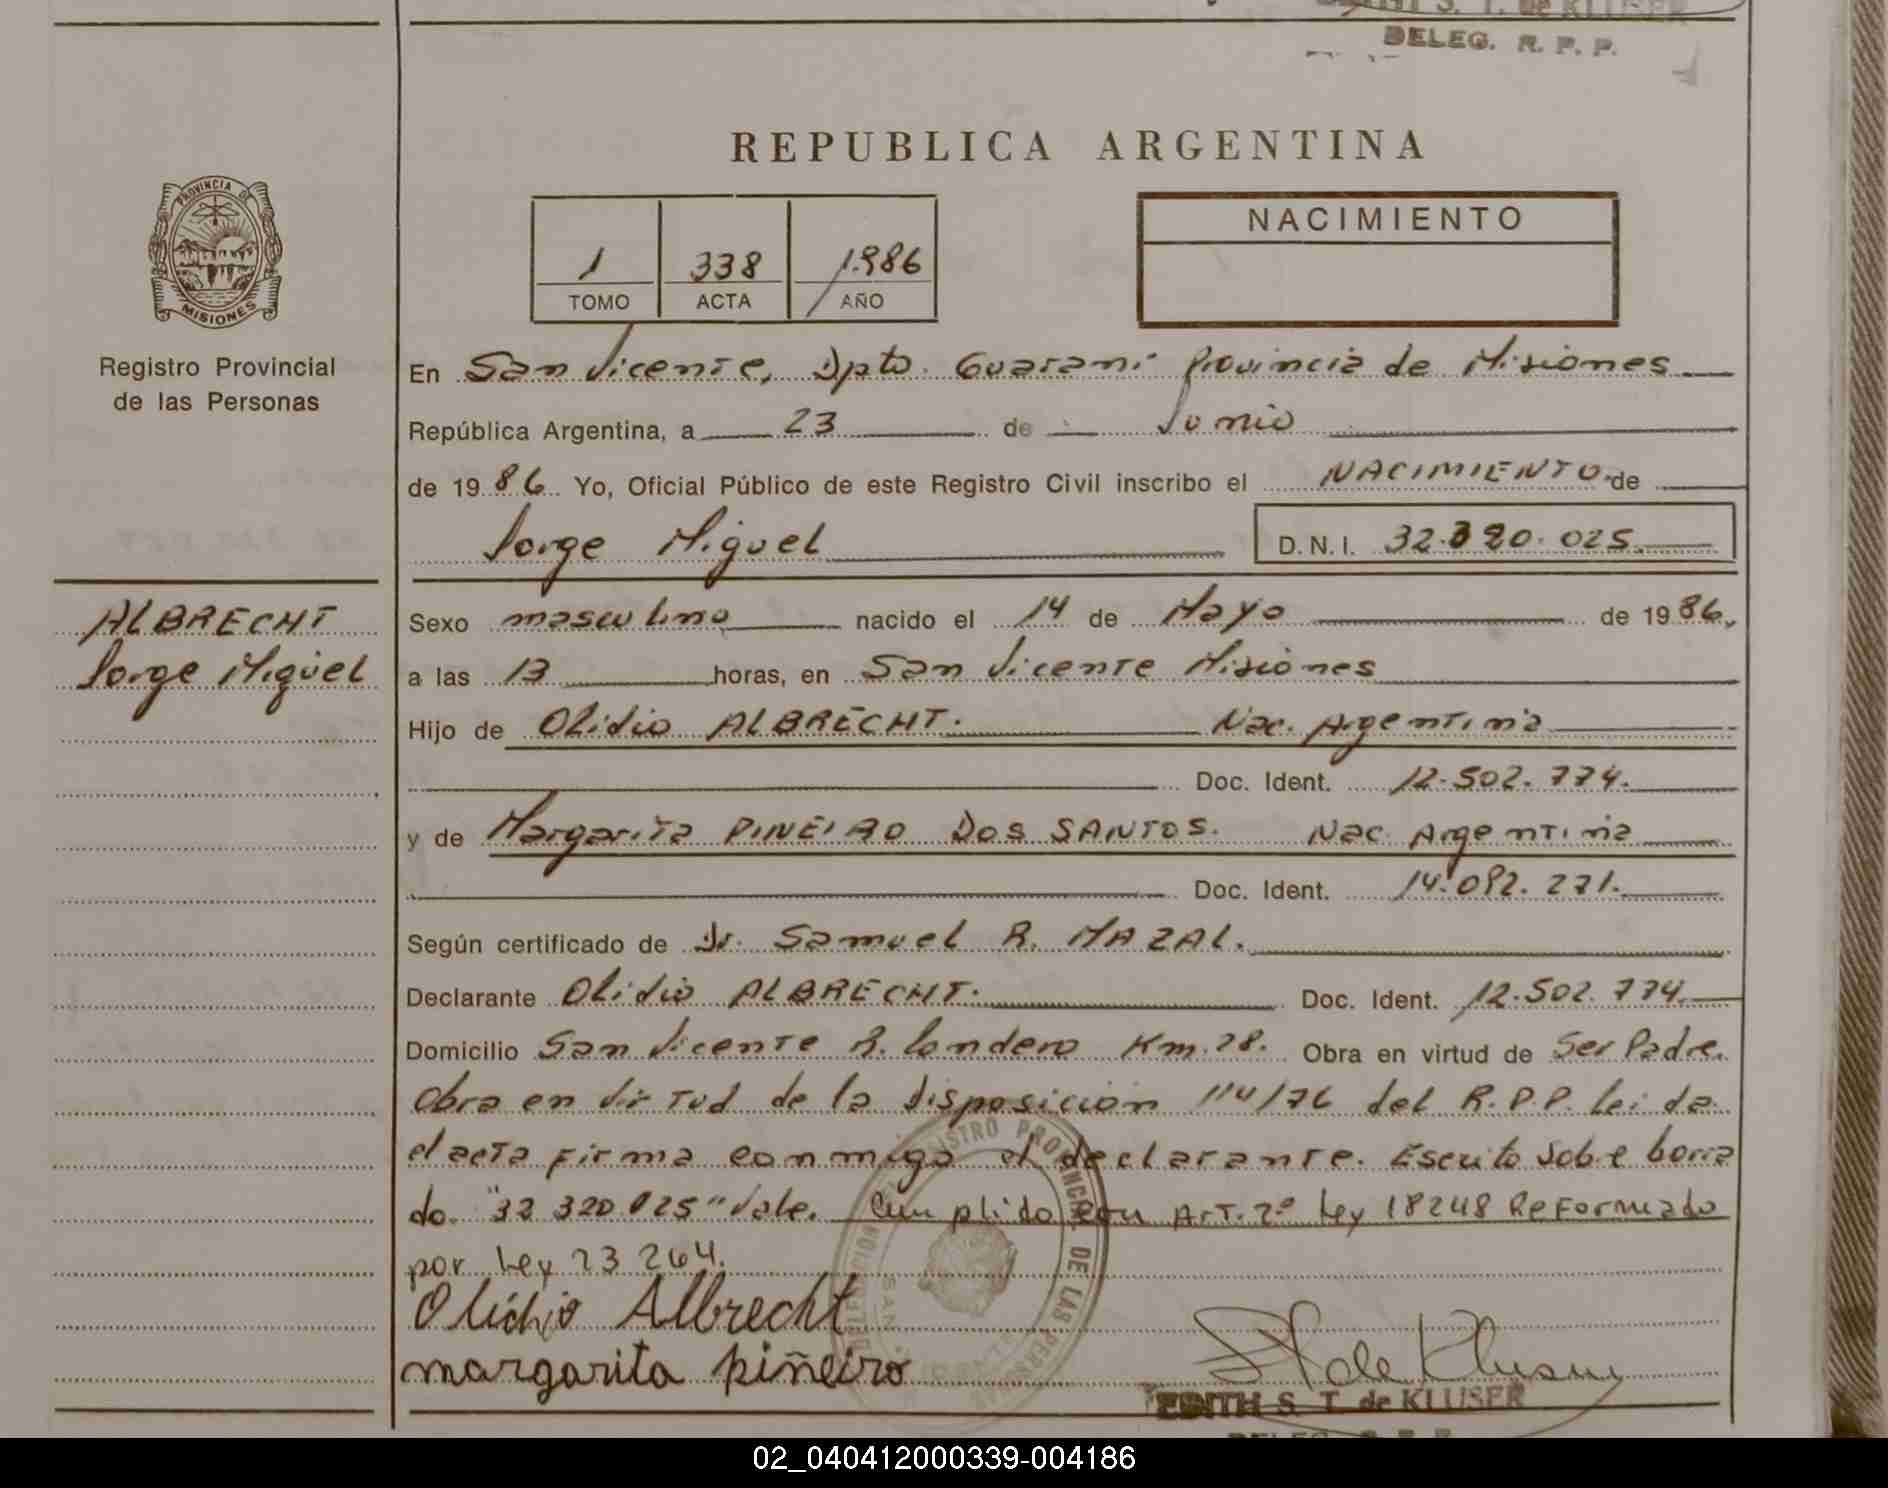 DELEG. R. P. P.
REPUBLICA ARGENTINA
PROVINCIA DE
MISIONES
Registro Provincial
de las Personas
1 338 1.986
TOMO ACTA AÑO
NACIMIENTO
En San Vicente, Dpto. Guaraní Provincia de Misiones
República Argentina, a 23 de Junio
de 1986 Yo, Oficial Público de este Registro Civil inscribo el NACIMIENTO de
Jorge Miguel D.N.I. 32.320.025
ALBRECHT
Jorge Miguel
Sexo masculino nacido el 14 de Mayo de 1986,
a las 13 horas, en San Vicente Misiones
Hijo de Olidio ALBRECHT. Nac. Argentina
Doc. Ident. 12.502.774.
y de Margarita PINEIRO DOS SANTOS. Nac. Argentina
Doc. Ident. 14.092.271.
Según certificado de Dr. Samuel R. MAZAL.
Declarante Olidio ALBRECHT. Doc. Ident. 12.502.774.
Domicilio San Vicente R. Londero Km. 28. Obra en virtud de Ser Padre.
Obra en virtud de la disposición 114/76 del R.P.P. Leida
el acta firma conmigo el declarante. Escrito sobre borra
do. "32 320 025" Vale. Cumplido con Art. 2º Ley 18248 Reformado
por Ley 23 264.
Olidio Albrecht
margarita piñeiro
EDITH S. T. de KLUSER
02_040412000339-004186